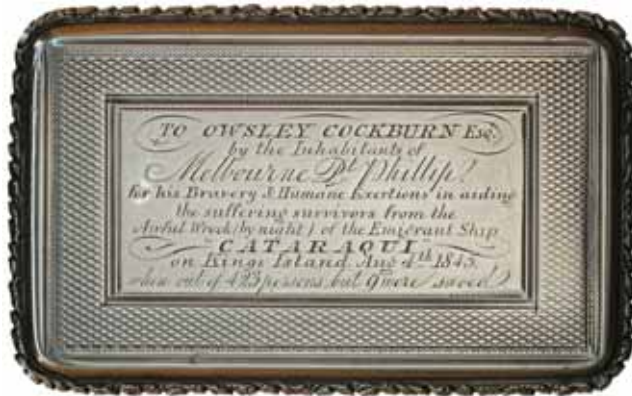 TO OWSLEY COCKBURN Esq.
by the Inhabitants of
Melbourne Pt. Phillip
for his Bravery & Humane Exertions in aiding
the suffering survivors from the
Awful Wreck (by night) of the Emigrant Ship
"CATARAQUI"
on Kings Island Aug 4th 1845.
when out of 423 persons, but 9 were saved